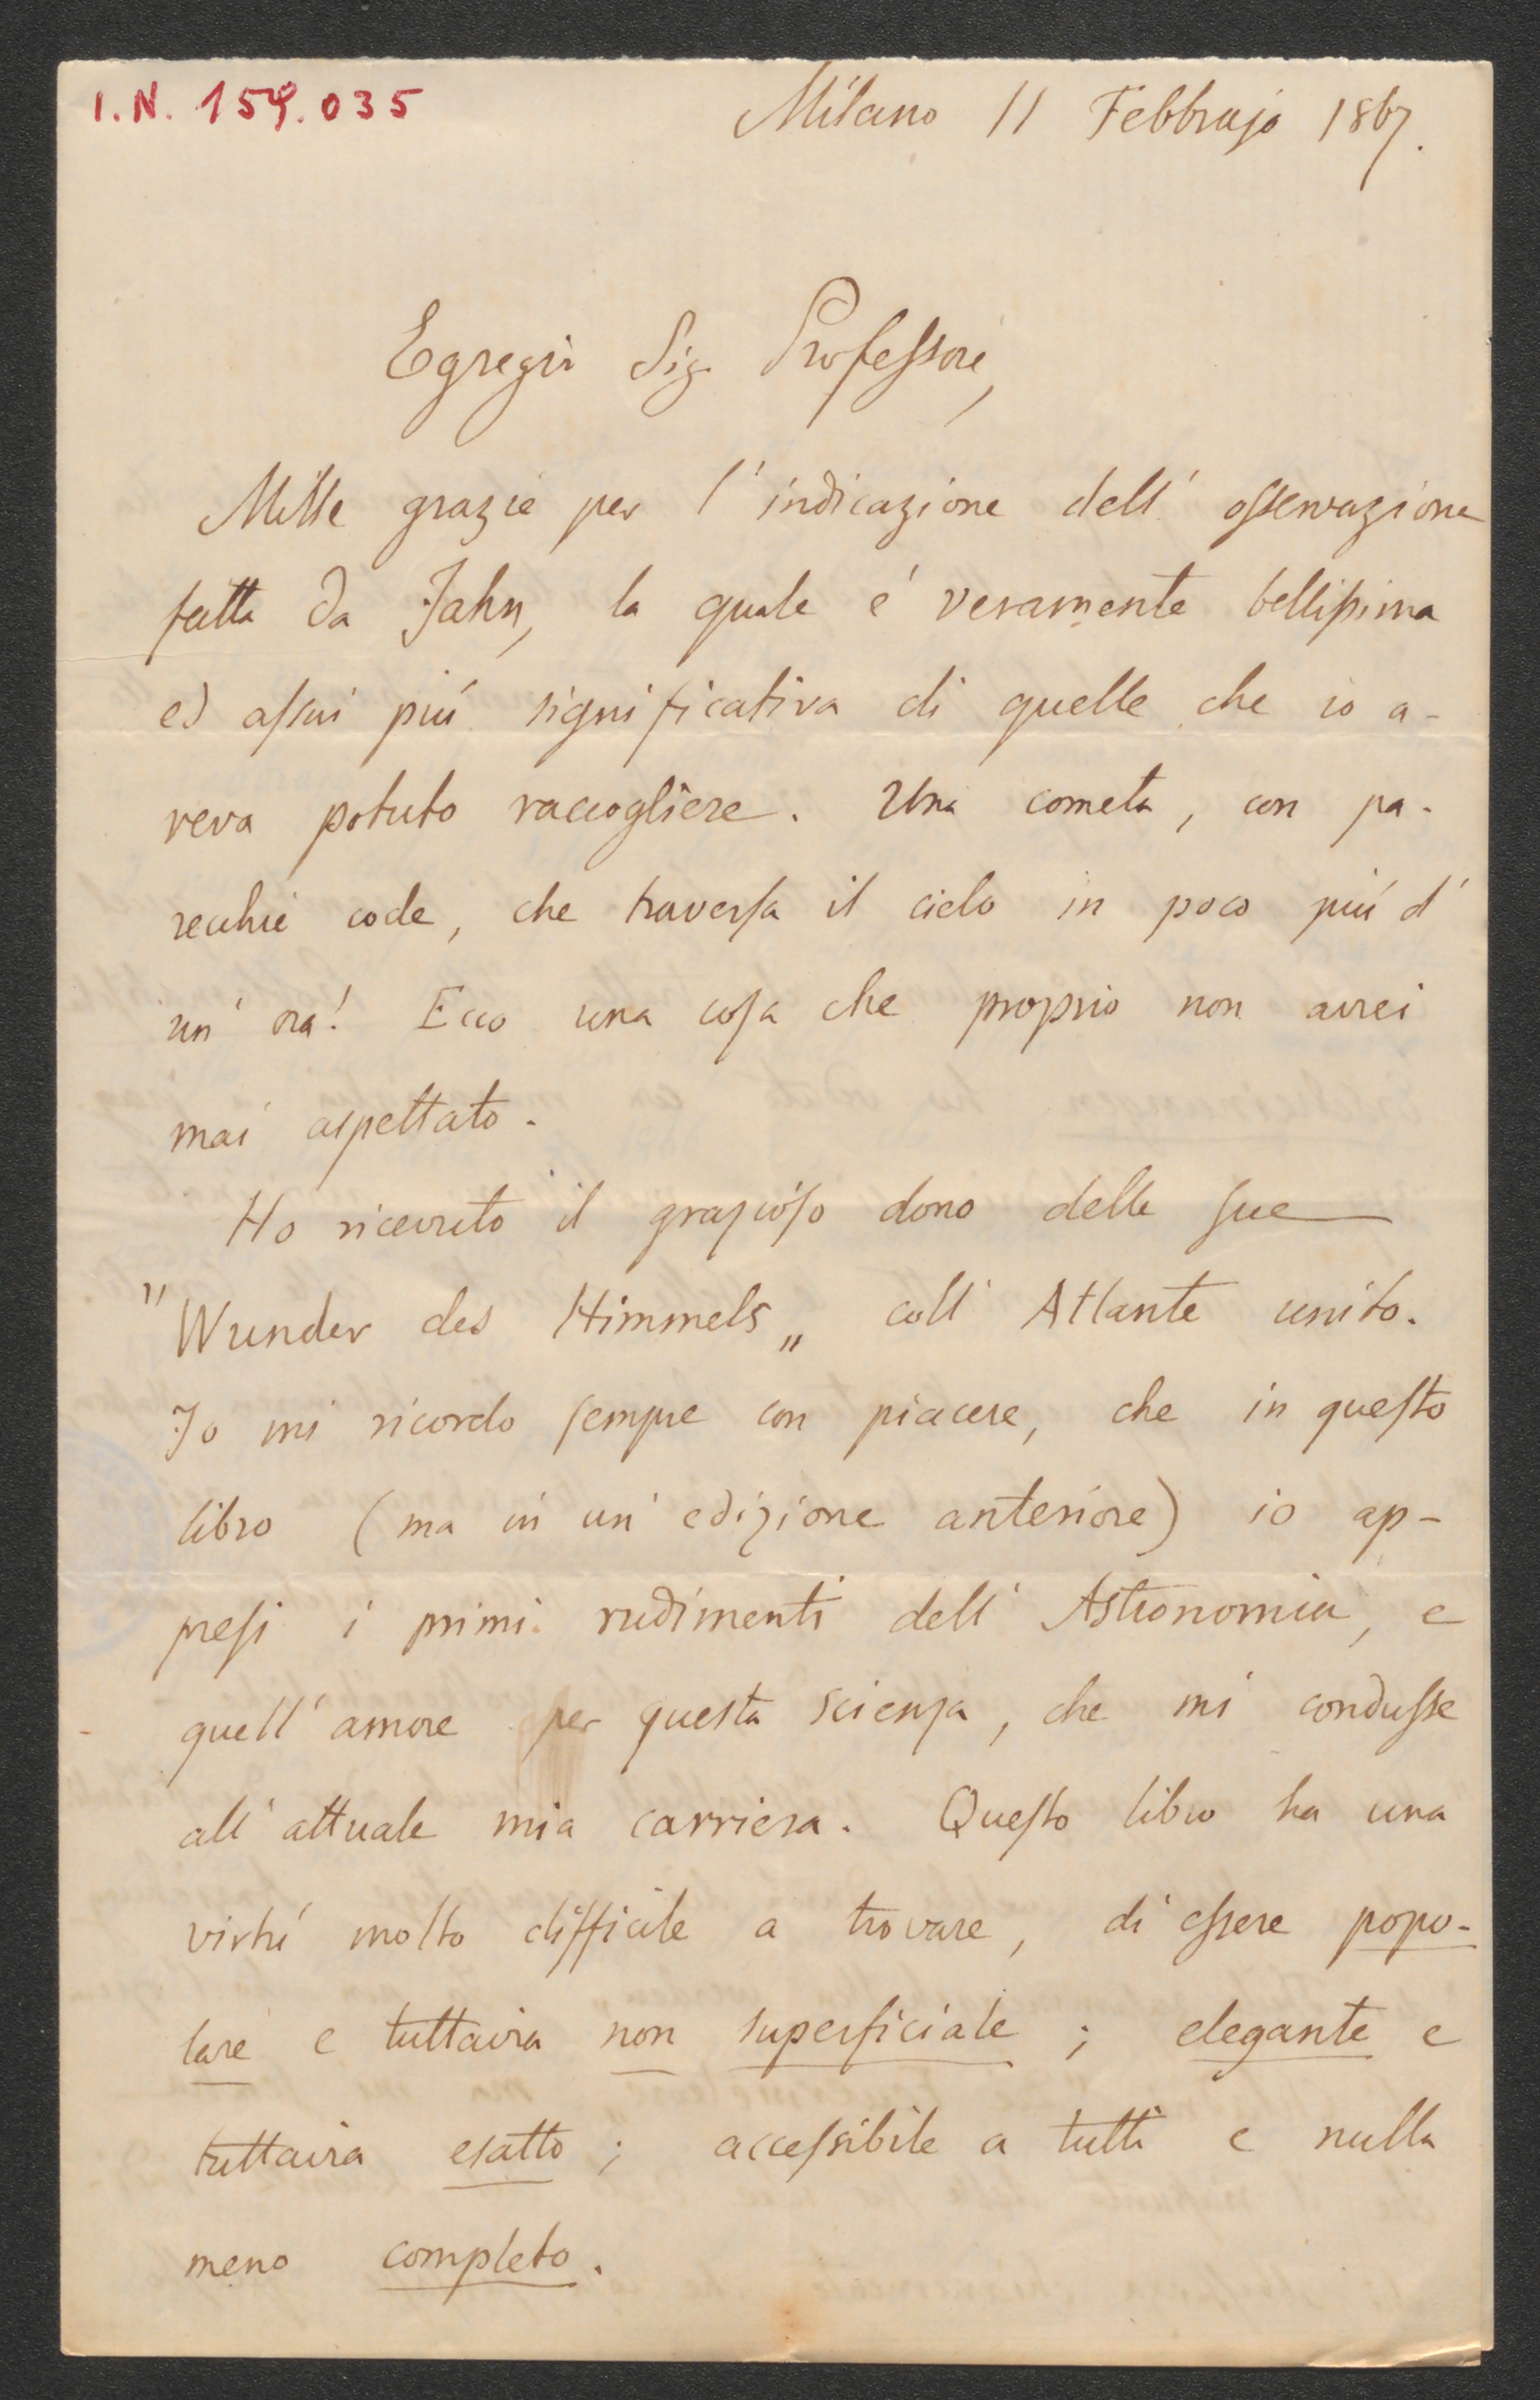 I.N. 159.035
Milano 11 Febbrajo 1867.
Egregio Sig. Professore,
Mille grazie per l'indicazione dell'osservazione
fatta da Jahn, la quale é veramente bellissima
ed assai piú significativa di quelle che io a-
veva potuto raccogliere. Una cometa, con pa-
recchie code, che traversa il cielo in poco piú d'
un'ora! Ecco una cosa che proprio non avrei
mai aspettato.
Ho ricevuto il grazioso dono delle sue
"Wunder des Himmels„ coll'Atlante unito.
Io mi ricordo sempre con piacere, che in questo
libro (ma in un'edizione anteriore) io ap-
presi i primi rudimenti dell'Astronomia, e
quell'amore per questa scienza, che mi condusse
all'attuale mia carriera. Questo libro ha una
virtú molto difficile a trovare, di essere popo-
lare e tuttavia non superficiale; elegante e
tuttavia esatto; accessibile a tutti e nulla
meno completo.